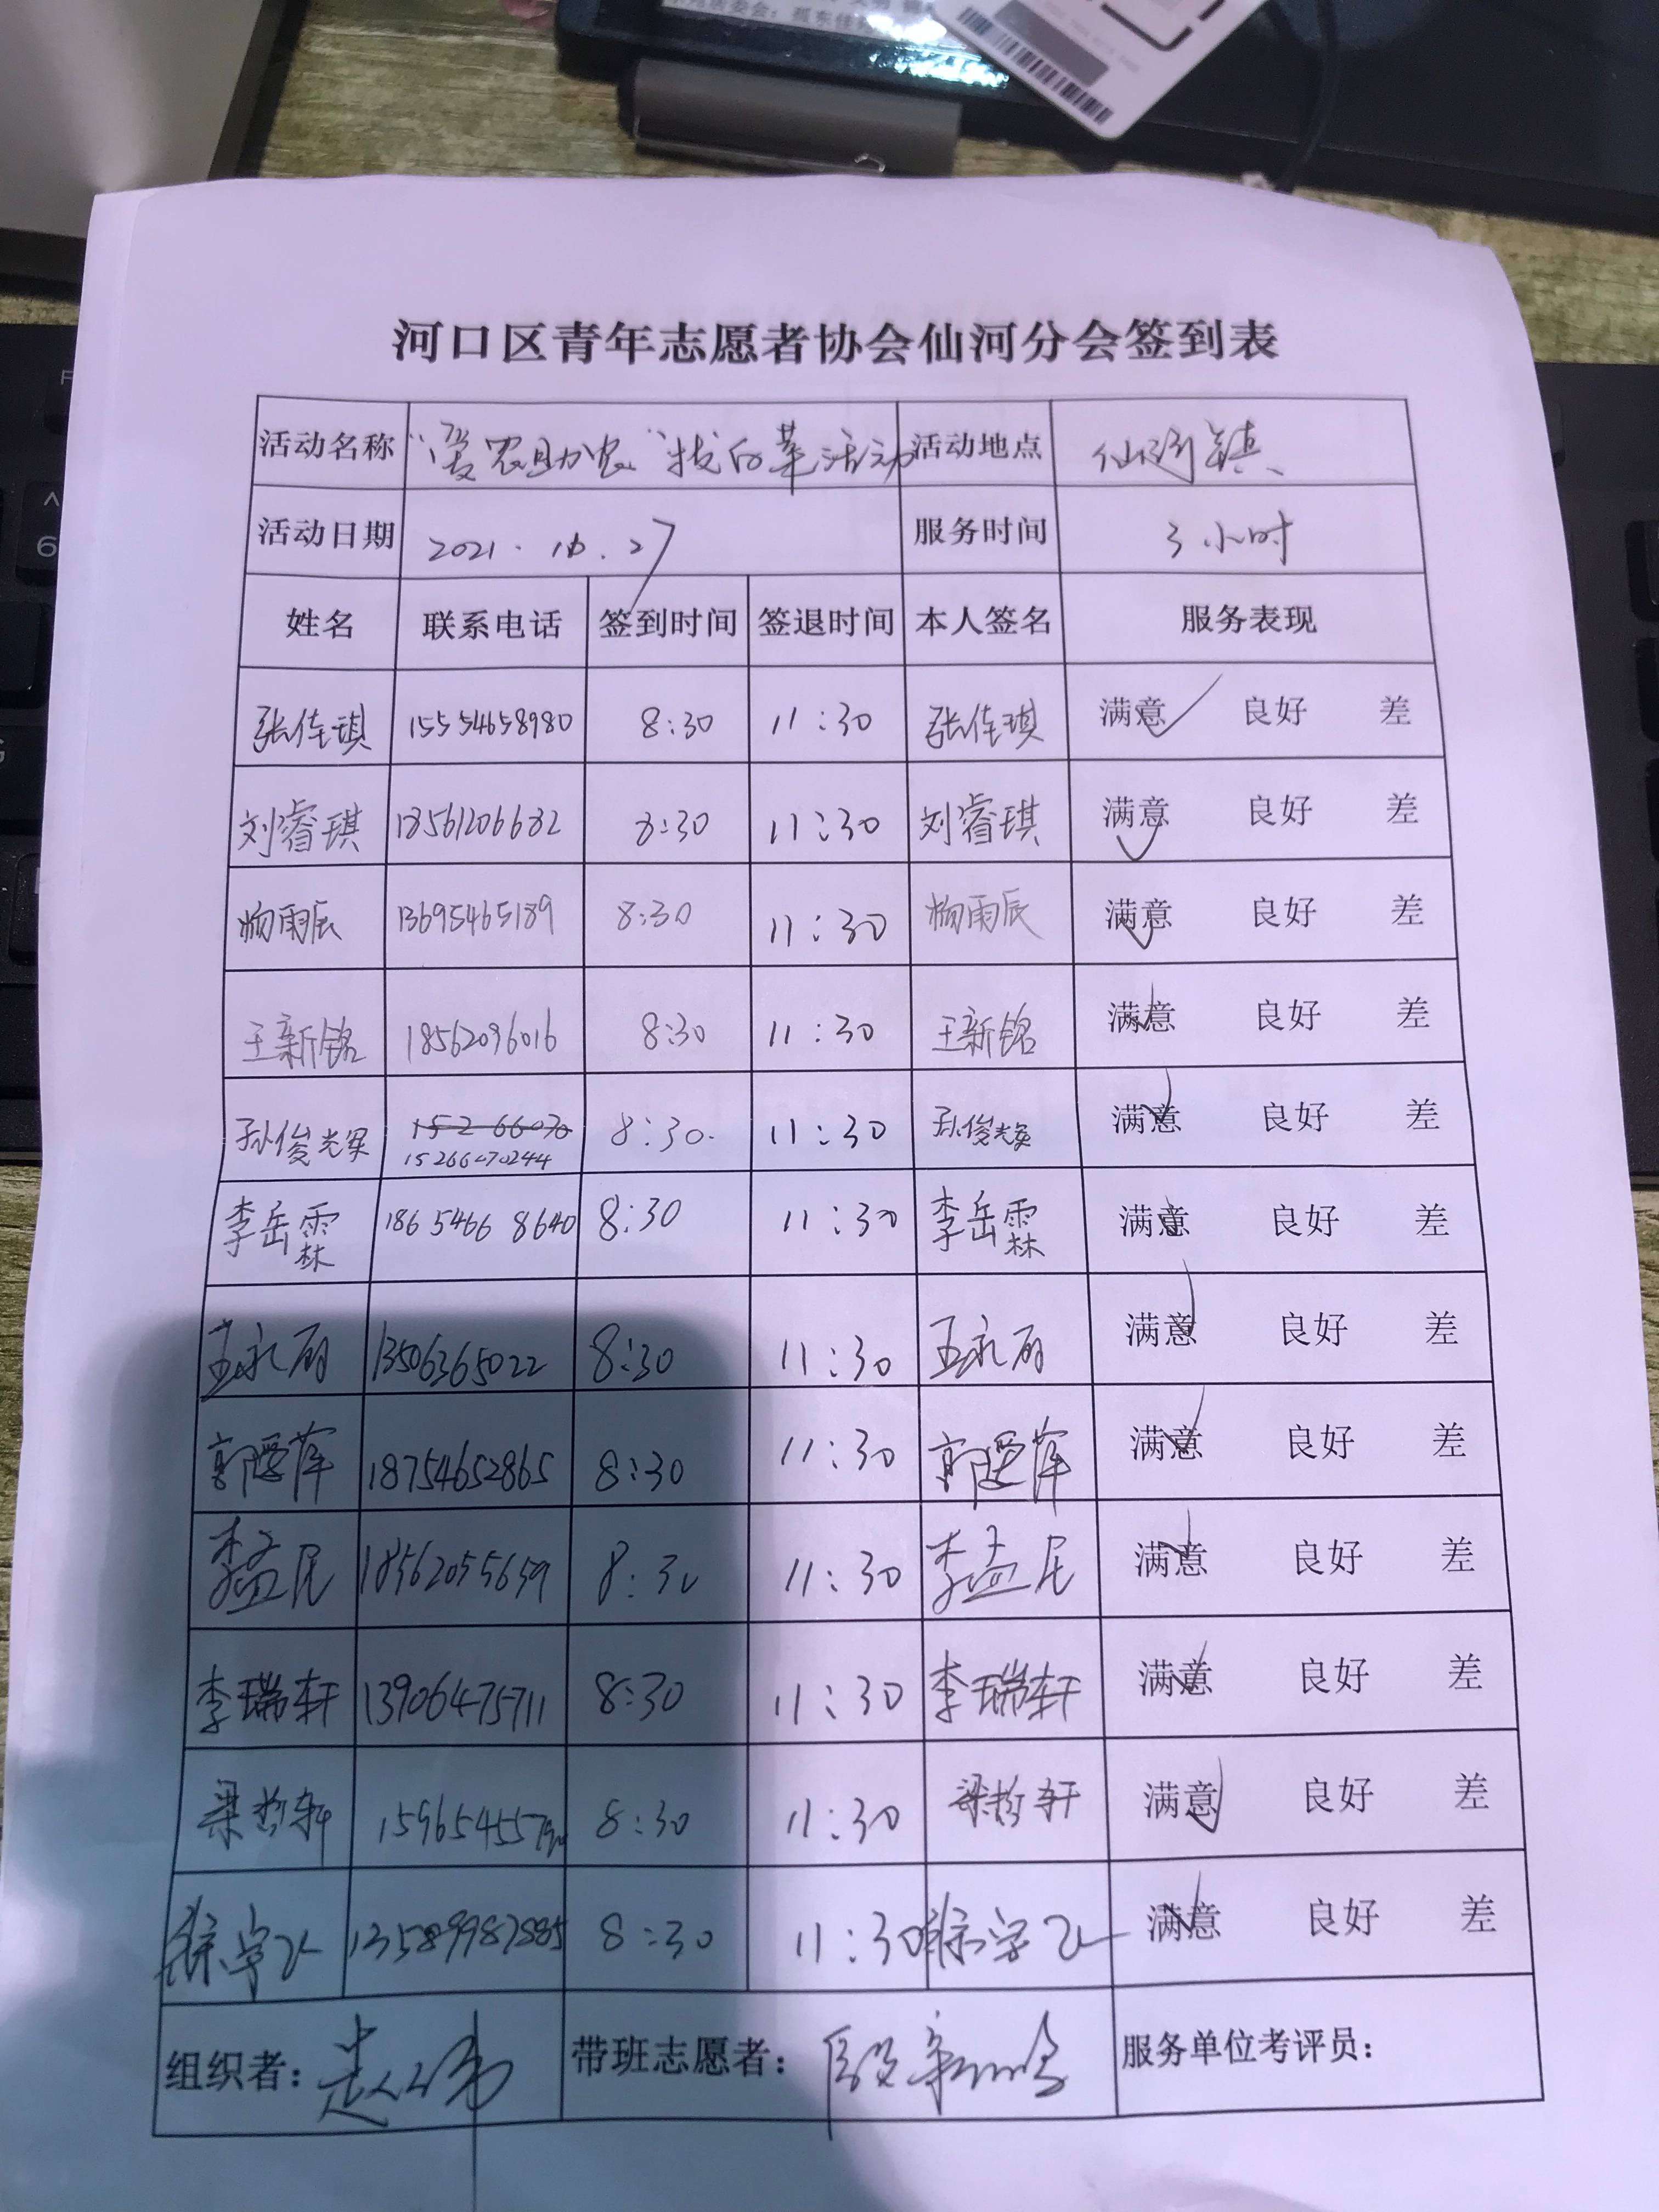 河口区青年志愿者协会仙河分会签到表
活动名称 “爱农助农”拔白菜活动 活动地点 仙河镇
活动日期 2021.10.27 服务时间 3小时
姓名 联系电话 签到时间 签退时间 本人签名 服务表现
张佳琪 15554658980 8:30 11:30 张佳琪 满意 良好 差
刘睿琪 18561206682 8:30 11:30 刘睿琪 满意 良好 差
杨雨辰 13695465189 8:30 11:30 杨雨辰 满意 良好 差
王新铭 18562096016 8:30 11:30 王新铭 满意 良好 差
孙俊 15266070244 8:30 11:30 孙俊 满意 良好 差
李岳霖 186 5466 8640 8:30 11:30 李岳霖 满意 良好 差
13506365022 8:30 11:30 满意 良好 差
郭 萍 18754652865 8:30 11:30 郭 萍 满意 良好 差
李益民 18562055659 8:30 11:30 李益民 满意 良好 差
李瑞轩 13906475711 8:30 11:30 李瑞轩 满意 良好 差
梁哲轩 8:30 11:30 梁哲轩 满意 良好 差
徐宇飞 8:30 11:30 徐宇飞 满意 良好 差
组织者： 赵伟 带班志愿者： 段新 服务单位考评员：